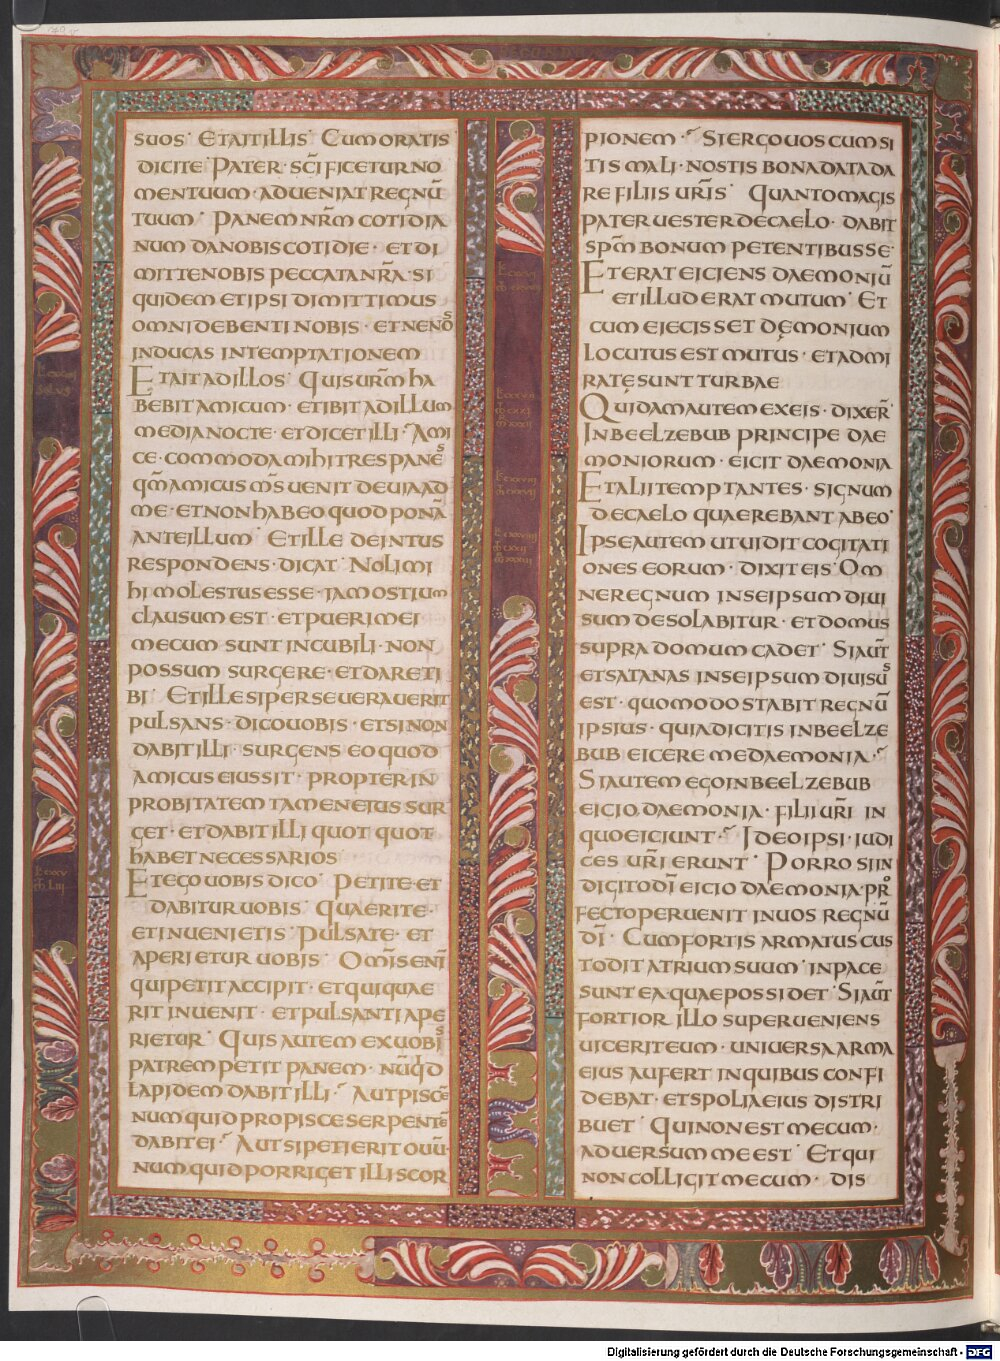 SUOS· ET AIT ILLIS· CUM ORATIS
DICITE· PATER· SC̄IFICETUR NO
MEN TUUM· ADUENIAT REGNŪ
TUUM· PANEM NR̄M COTIDIA
NUM DA NOBIS COTIDIE· ET DI
MITTE NOBIS PECCATA NR̄A· SI
QUIDEM ET IPSI DIMITTIMUS
OMNI DEBENTI NOBIS· ET NE NOS
INDUCAS IN TEMPTATIONEM
ET AIT AD ILLOS· QUIS UR̄M HA
BEBIT AMICUM· ET IBIT AD ILLUM
MEDIA NOCTE· ET DICET ILLI· AMI
CE· COMMODA MIHI TRES PANES
QM̄ AMICUS MS̄ UENIT DE UIA AD
ME· ET NON HABEO QUOD PONĀ
ANTE ILLUM· ET ILLE DEINTUS
RESPONDENS· DICAT· NOLI MI
HI MOLESTUS ESSE· IAM OSTIUM
CLAUSUM EST· ET PUERI MEI
MECUM SUNT IN CUBILI· NON
POSSUM SURGERE· ET DARE TI
BI· ET ILLE SI PERSEUERAUERIT
PULSANS· DICO UOBIS· ETSI NON
DABIT ILLI· SURGENS EO QUOD
AMICUS EIUS SIT· PROPTER IN
PROBITATEM TAMEN EIUS SUR
GET· ET DABIT ILLI QUOTQUOT
HABET NECESSARIOS
ET EGO UOBIS DICO· PETITE· ET
DABITUR UOBIS· QUAERITE·
ET INUENIETIS· PULSATE· ET
APERIETUR UOBIS· OM̄IS ENĪ
QUI PETIT ACCIPIT· ET QUI QUAE
RIT INUENIT· ET PULSANTI APE
RIETUR· QUIS AUTEM EX UOBIS
PATREM PETIT PANEM· NŪQD
LAPIDEM DABIT ILLI· AUT PISCĒ
NUMQUID PRO PISCE SERPENTĒ
DABIT EI· AUT SI PETIERIT OUŪ·
NUMQUID PORRIGET ILLI SCOR
PIONEM· SI ERGO UOS CUM SI
TIS MALI· NOSTIS BONA DATA DA
RE FILIIS UR̄IS· QUANTO MAGIS
PATER UESTER DE CAELO· DABIT
SPM̄ BONUM PETENTIBUS SE·
ET ERAT EICIENS DAEMONIŪ
ET ILLUD ERAT MUTUM· ET
CUM EIECISSET DĘMONIUM
LOCUTUS EST MUTUS· ET ADMI
RATĘ SUNT TURBAE
QUIDAM AUTEM EX EIS· DIXER̄·
IN BEELZEBUB PRINCIPE DAE
MONIORUM· EICIT DAEMONIA
ET ALII TEMPTANTES· SIGNUM
DE CAELO QUAEREBANT AB EO·
IPSE AUTEM UT UIDIT COGITATI
ONES EORUM· DIXIT EIS· OM
NE REGNUM IN SE IPSUM DIUI
SUM DESOLABITUR· ET DOMUS
SUPRA DOMUM CADET· SI AUT̄
ET SATANAS IN SE IPSUM DIUISUS
EST· QUOMODO STABIT REGNŪ
IPSIUS· QUIA DICITIS IN BEELZE
BUB EICERE ME DAEMONIA·
SI AUTEM EGO IN BEELZEBUB
EICIO DAEMONIA· FILII UR̄I IN
QUO EICIUNT· IDEO IPSI· IUDI
CES UR̄I ERUNT· PORRO SI IN
DIGITO DĪ EICIO DAEMONIA· PRO
FECTO PERUENIT IN UOS REGNŪ
DĪ· CUM FORTIS ARMATUS CUS
TODIT ATRIUM SUUM· IN PACE
SUNT EA· QUAE POSSIDET· SI AUT̄
FORTIOR ILLO SUPERUENIENS
UICERIT EUM· UNIUERSA ARMA
EIUS AUFERT IN QUIBUS CONFI
DEBAT· ET SPOLIA EIUS DISTRI
BUET· QUI NON EST MECUM·
ADUERSUM ME EST· ET QUI
NON COLLIGIT MECUM· DIS
Digitalisierung gefördert durch die Deutsche Forschungsgemeinschaft - DFG